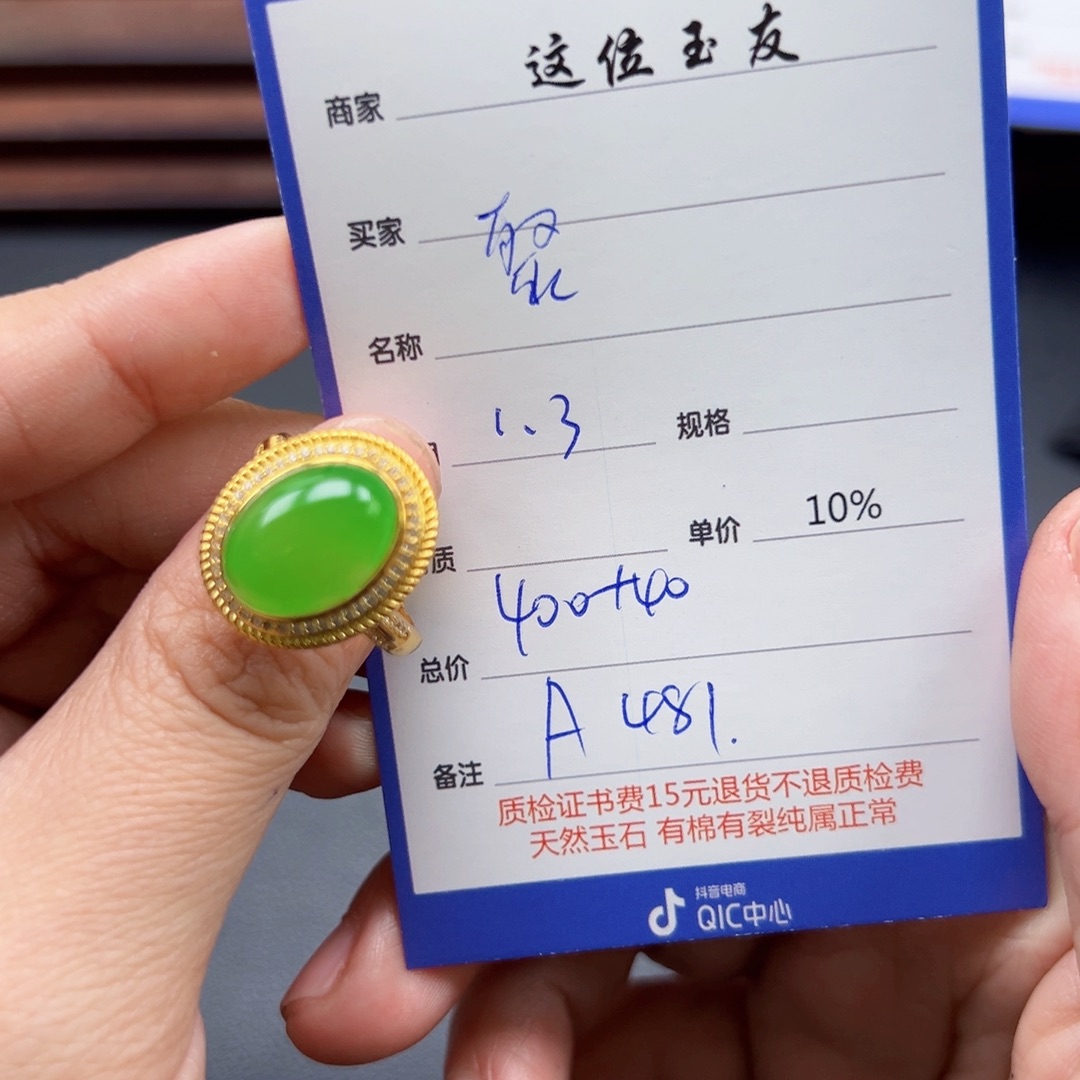 商家 这位玉友
买家
名称
1.3 规格
质 单价 10%
总价 400+40
备注 A 481.
质检证书费15元退货不退质检费
天然玉石 有棉有裂纯属正常
抖音电商
QIC中心